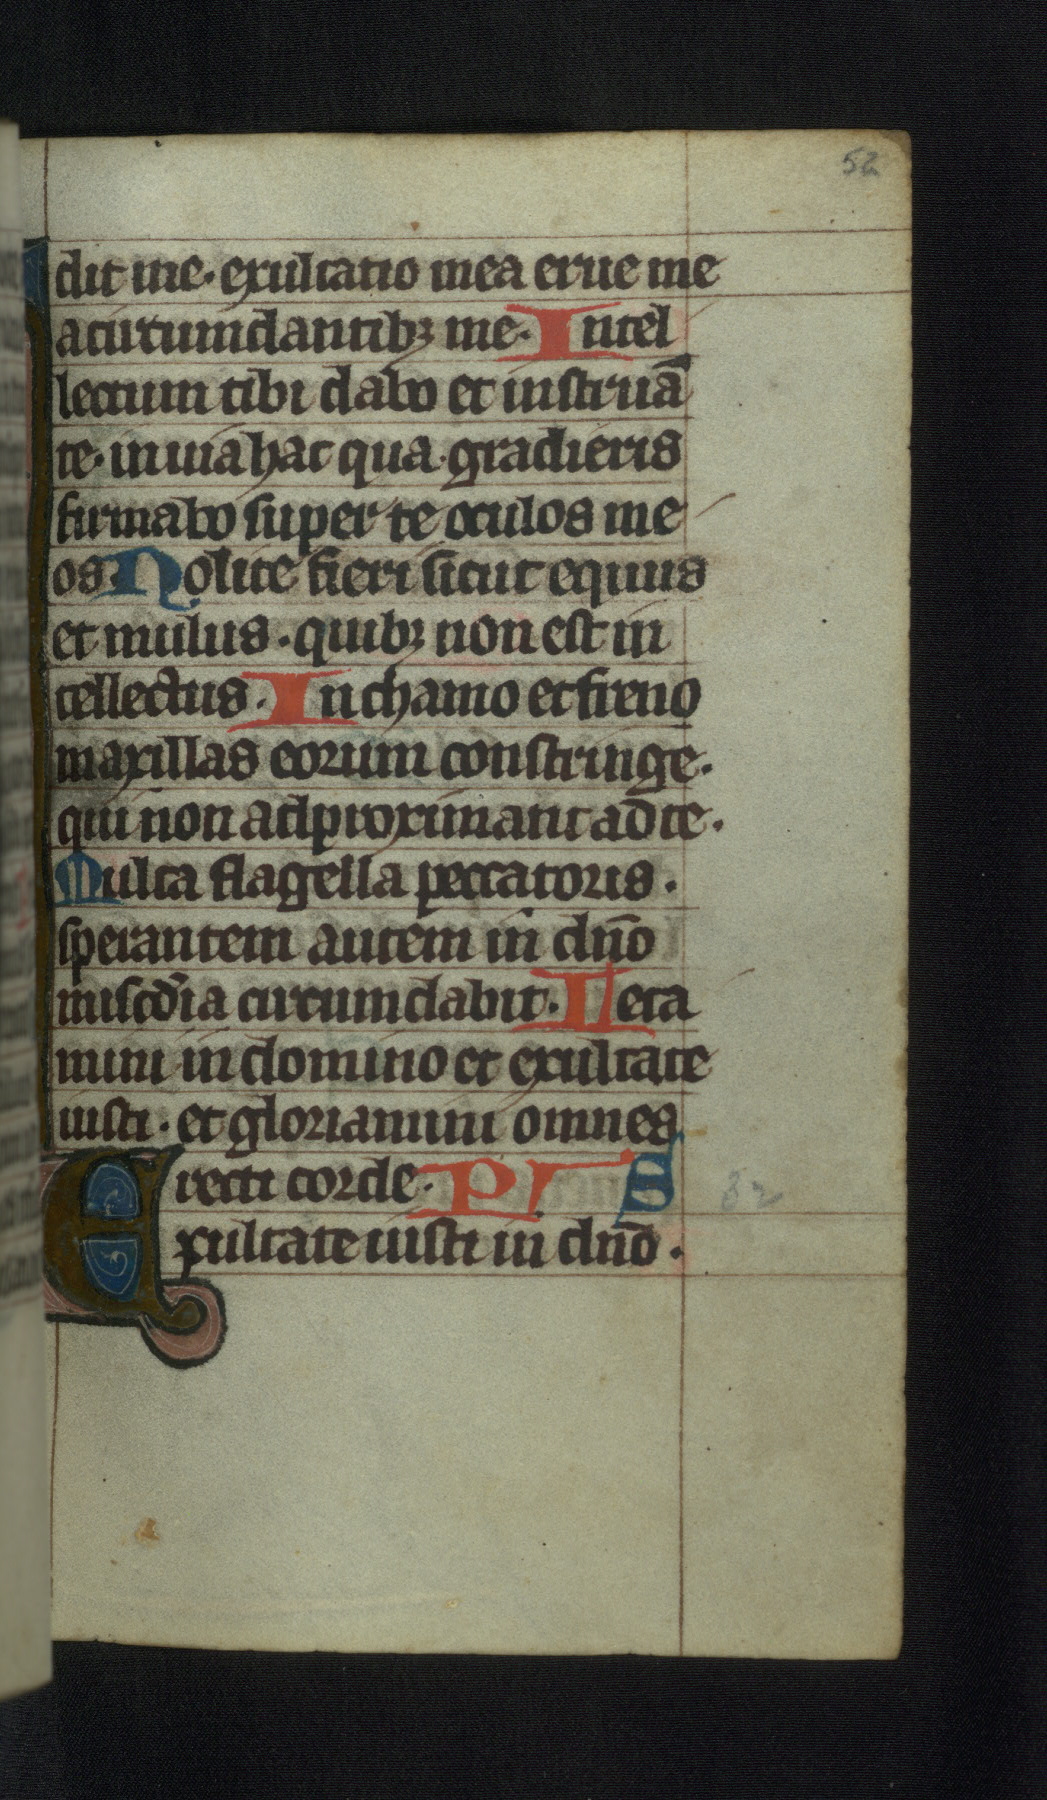 52
dit me· exultatio mea erue me
a circumdantibꝫ me· Intel
lectum tibi dabo et instruā
te· in uia hac qua gradieris
firmabo super te oculos me
os· Nolite fieri sicut equus
et mulus · quibꝫ non est in
tellectus · In chamo et freno
maxillas eorum constringe·
qui non adproximant ad te·
Multa flagella peccatoris ·
sperantem autem in dn̄o
miscd̄ia circumdabit· Leta
mini in domino et exultate
iusti · et gloriamini omnes
recti corde · Ps
32
Exultate iusti in dn̄o ·